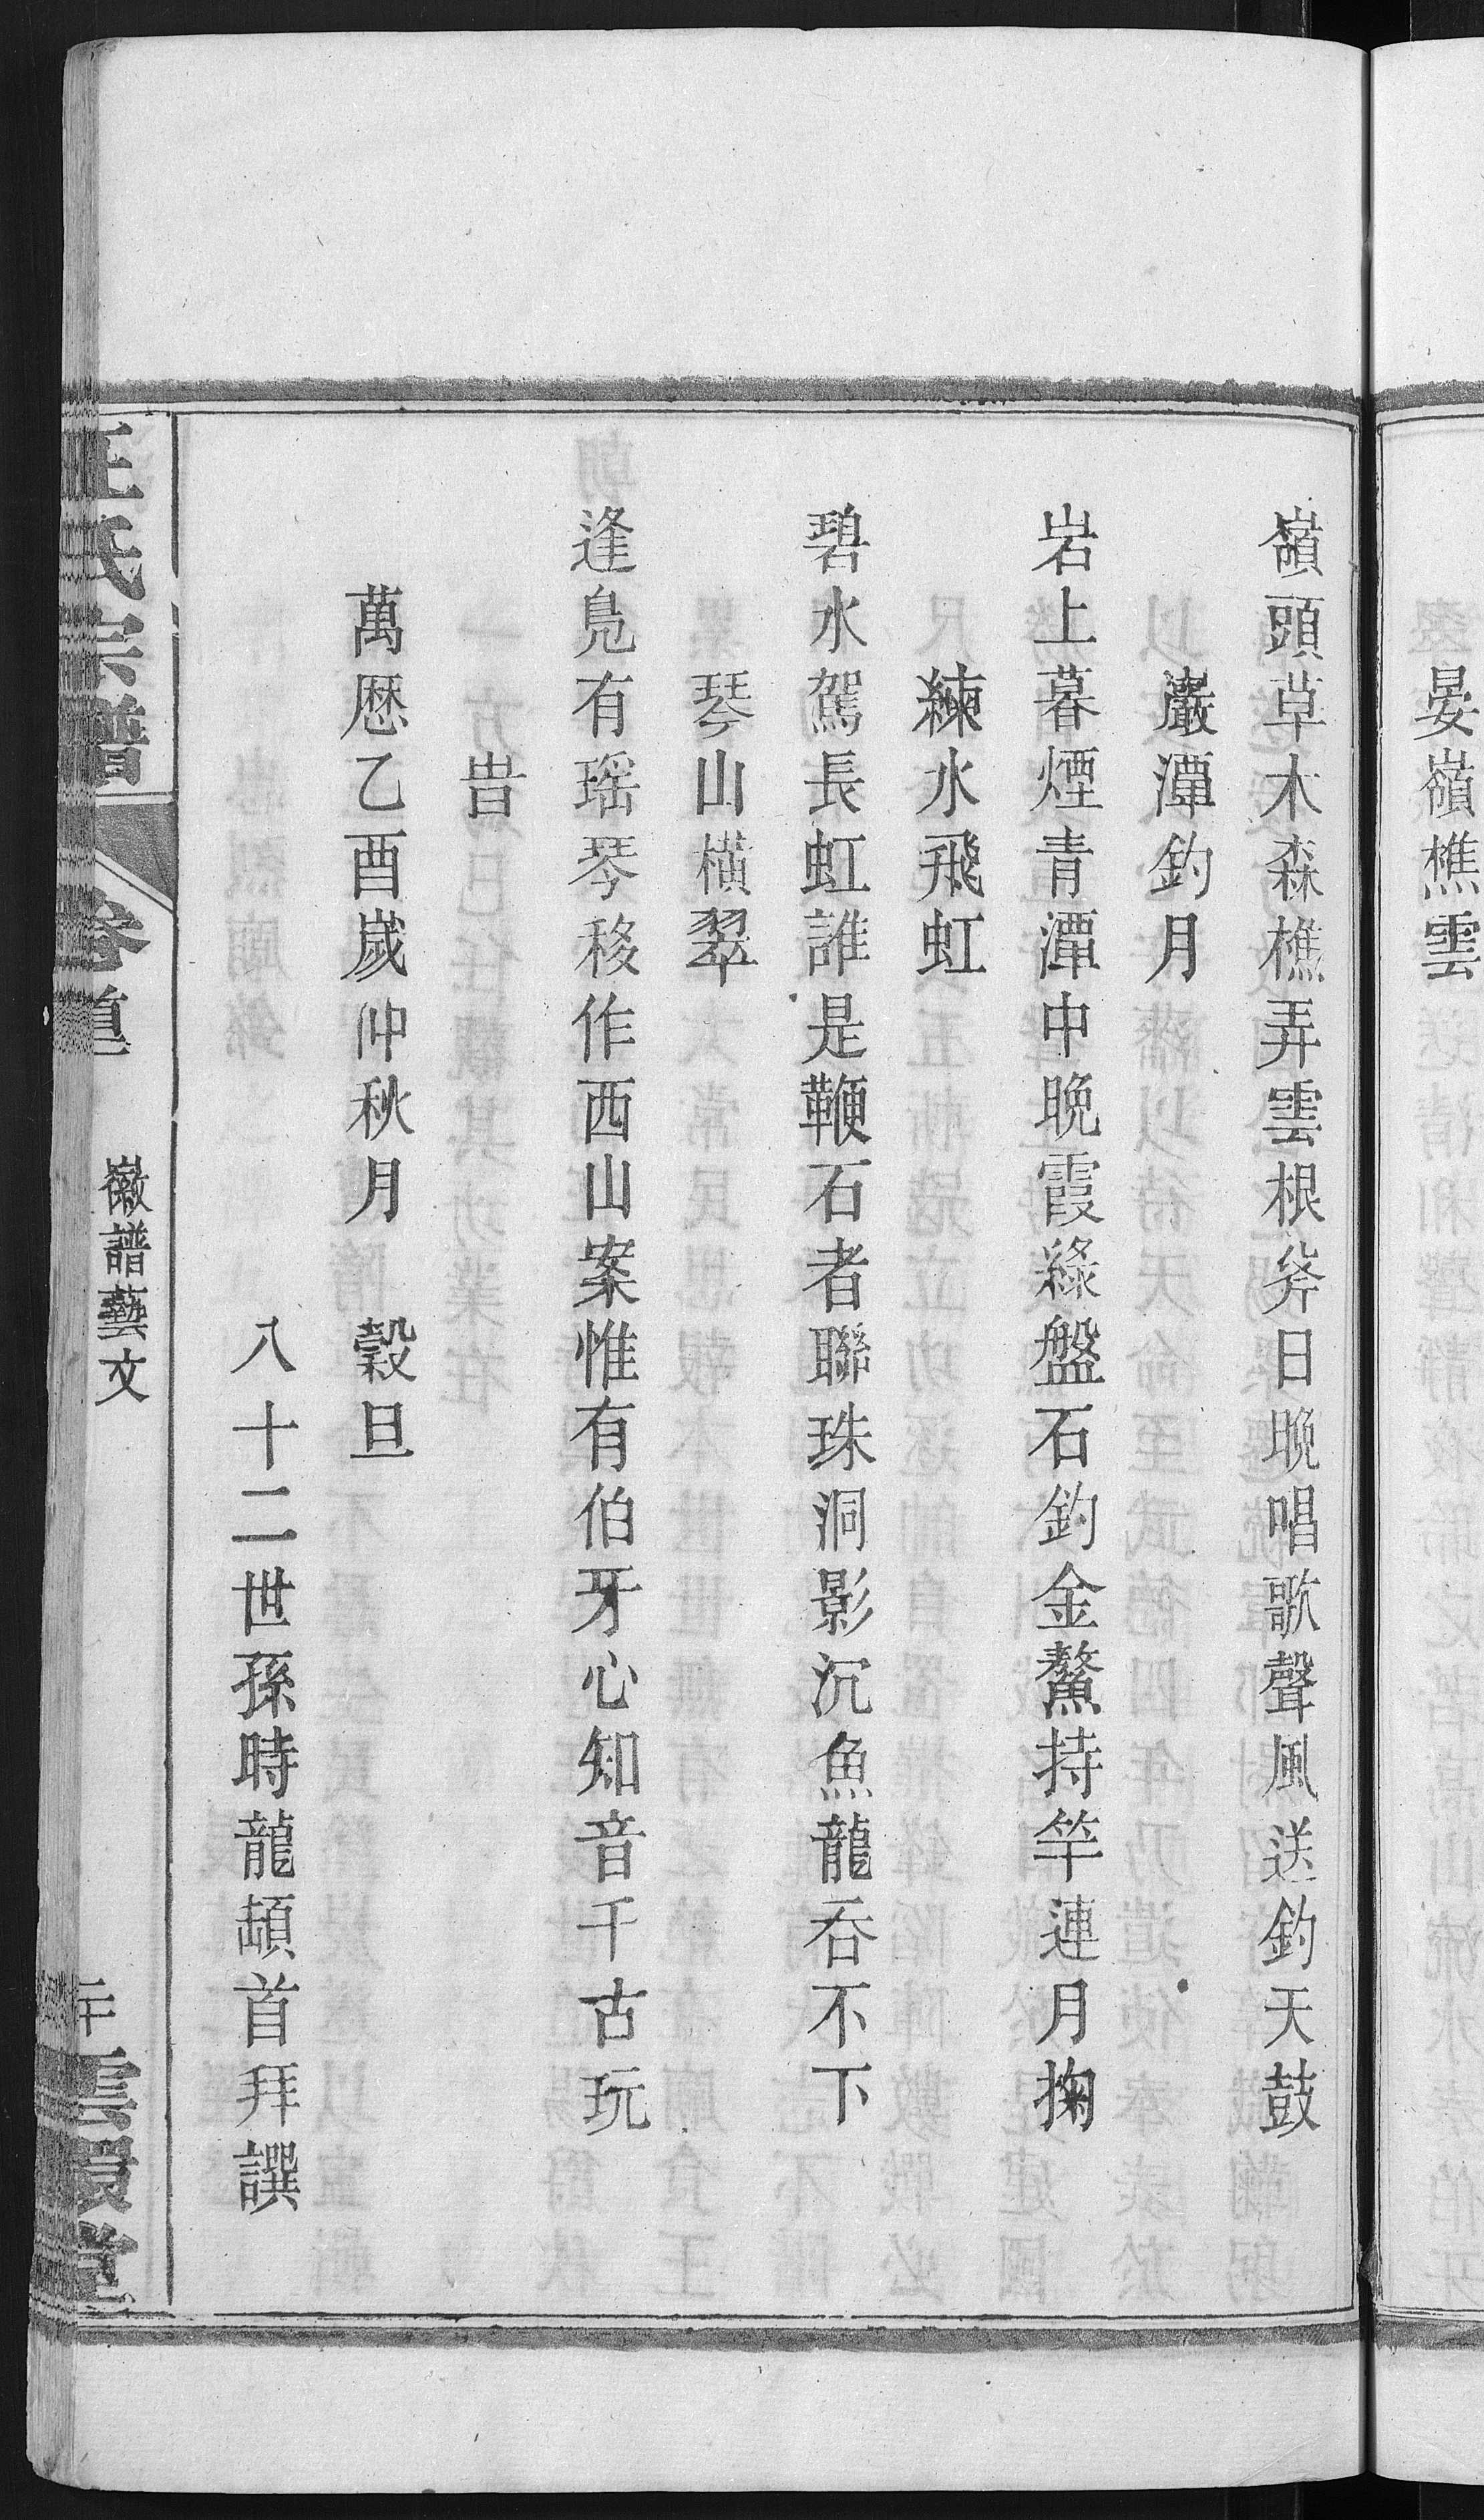 晏嶺樵雲
嶺頭草木森樵弄雲根斧日晚唱歌聲風送釣天鼓
巖潭釣月
岩上暮煙青潭中晚霞綠盤石釣金鰲持竿連月掬
練水飛虹
碧水駕長虹誰是鞭石者聯珠洞影沉魚龍吞不下
琴山橫翠
逢鳧有瑶琴移作西山案惟有伯牙心知音千古玩
旹
萬厯乙酉歲仲秋月　穀旦
八十二世孫時龍頓首拜譔
汪氏宗譜
卷首
徽譜藝文
二十
雲
堂